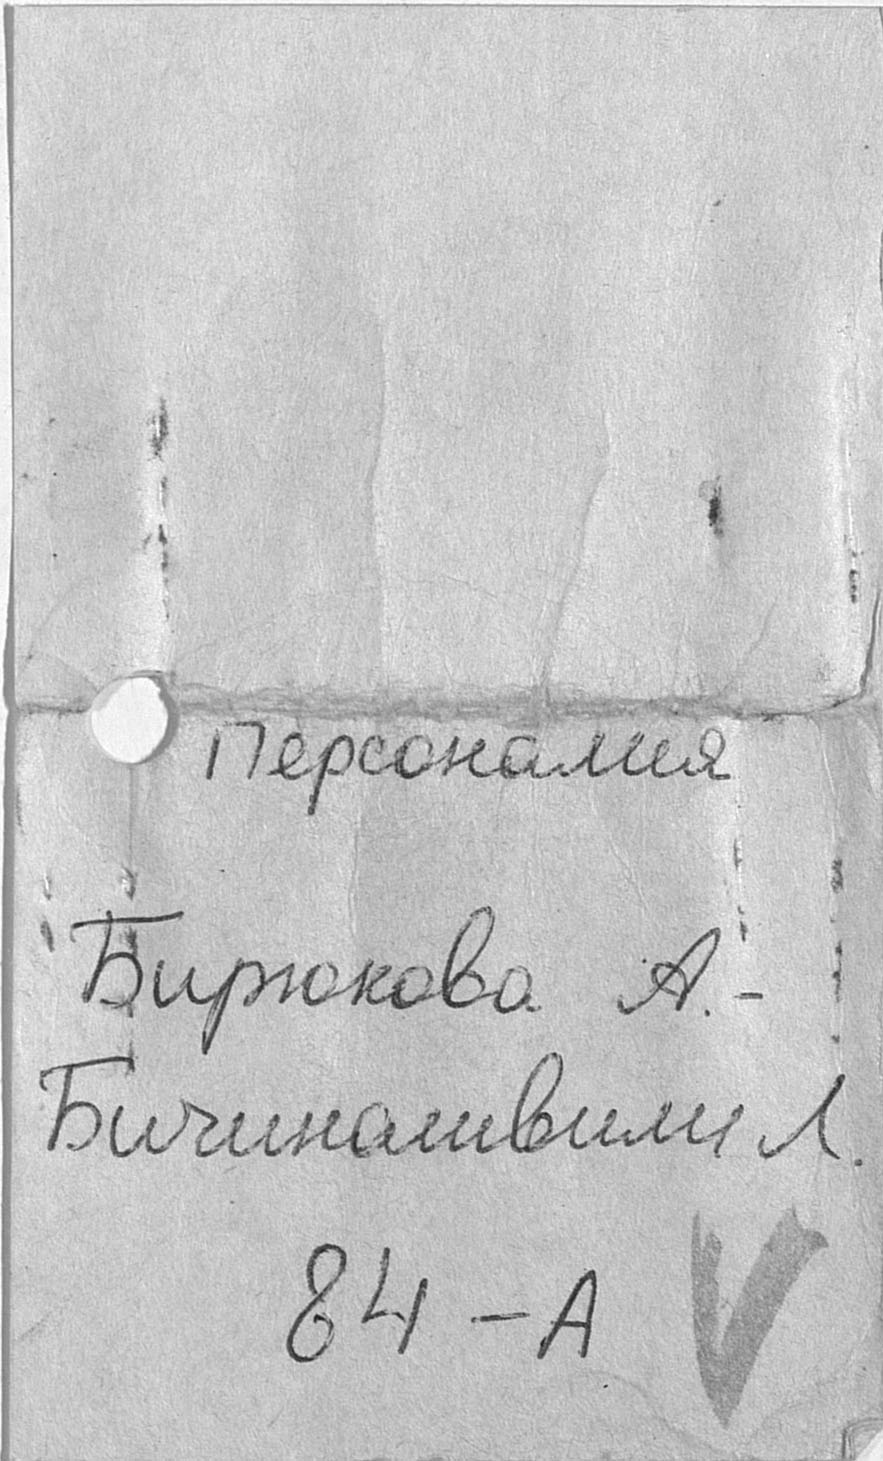 Персоналия
Бирюкова А. -
Бичинашвили Л.
84 - А